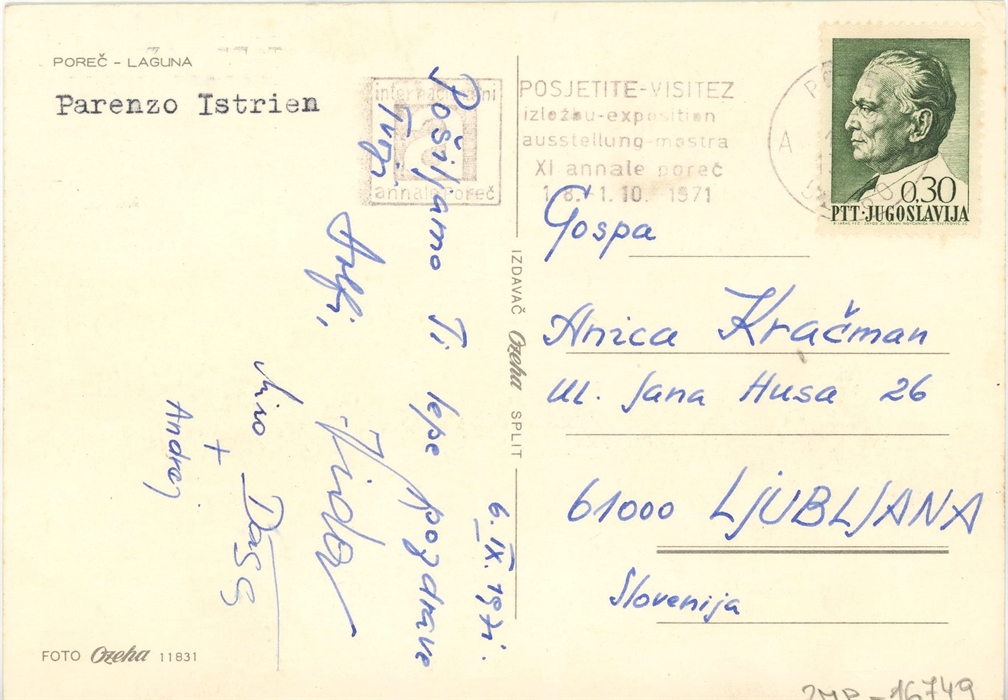 POREČ - LAGUNA
Parenzo Istrien
internacionalni
annale Poreč
POSJETITE-VISITEZ
izložbu-exposition
ausstellung-mostra
XI annale poreč
1.8.-1.10. 1971
A
0,30
PTT·JUGOSLAVIJA
6.IX.1971.
Pošiljamo Ti lepe pozdrave
Tvoji
+
Andrej
Gospa
Anica Kračman
Ul. Jana Husa 26
61000 LJUBLJANA
Slovenija
IZDAVAČ Ozeha SPLIT
FOTO Ozeha 11831